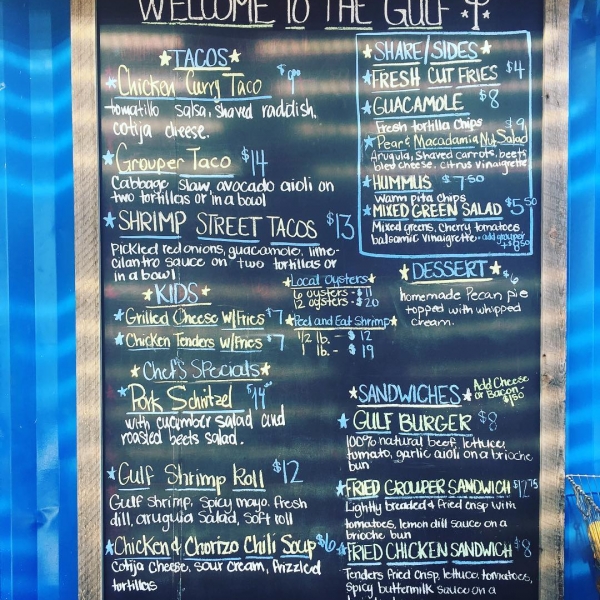 WELCOME TO THE GULF
TACOS
Chicken Curry Taco
tomatillo salsa, shaved raddish,
cotija cheese.
Grouper Taco $14
Cabbage slaw, avocado aioli on
two tortillas or in a bowl
SHRIMP STREET TACOS $13
Pickled red onions, guacamole, lime-
cilantro sauce on two tortillas or
in a bowl
KIDS
Grilled Cheese w/Fries $7
Chicken Tenders w/Fries $7
Local Oysters
6 oysters - $11
12 oysters - $20
Peel and Eat Shrimp
1/2 lb. - $12
1 lb. - $19
Chef's Specials
Pork Schnitzel $14
with cucumber salad and
roasted beets salad.
Gulf Shrimp Roll $12
Gulf Shrimp, spicy mayo, fresh
dill, arugula salad, soft roll
Chicken & Chorizo Chili Soup $6
Cotija Cheese, sour cream, frizzled
tortillas
SHARE/SIDES
FRESH CUT FRIES $4
GUACAMOLE $8
Fresh tortilla chips
Pear & Macadamia Nut Salad $9
Arugula, shaved carrots, beets
bleu cheese, citrus vinaigrette
HUMMUS $7.50
warm pita chips
MIXED GREEN SALAD $5.50
Mixed greens, cherry tomatoes
balsamic vinaigrette - add grouper
DESSERT
$6
homemade Pecan pie
topped with whipped
cream.
SANDWICHES
Add Cheese
or Bacon -
$1.50
GULF BURGER $8
100% natural beef, lettuce,
tomato, garlic aioli on a brioche
bun
FRIED GROUPER SANDWICH $12.75
Lightly breaded & fried crisp with
tomatoes, lemon dill sauce on a
brioche bun
FRIED CHICKEN SANDWICH $8
Tenders fried crisp, lettuce, tomatoes,
spicy buttermilk sauce on a